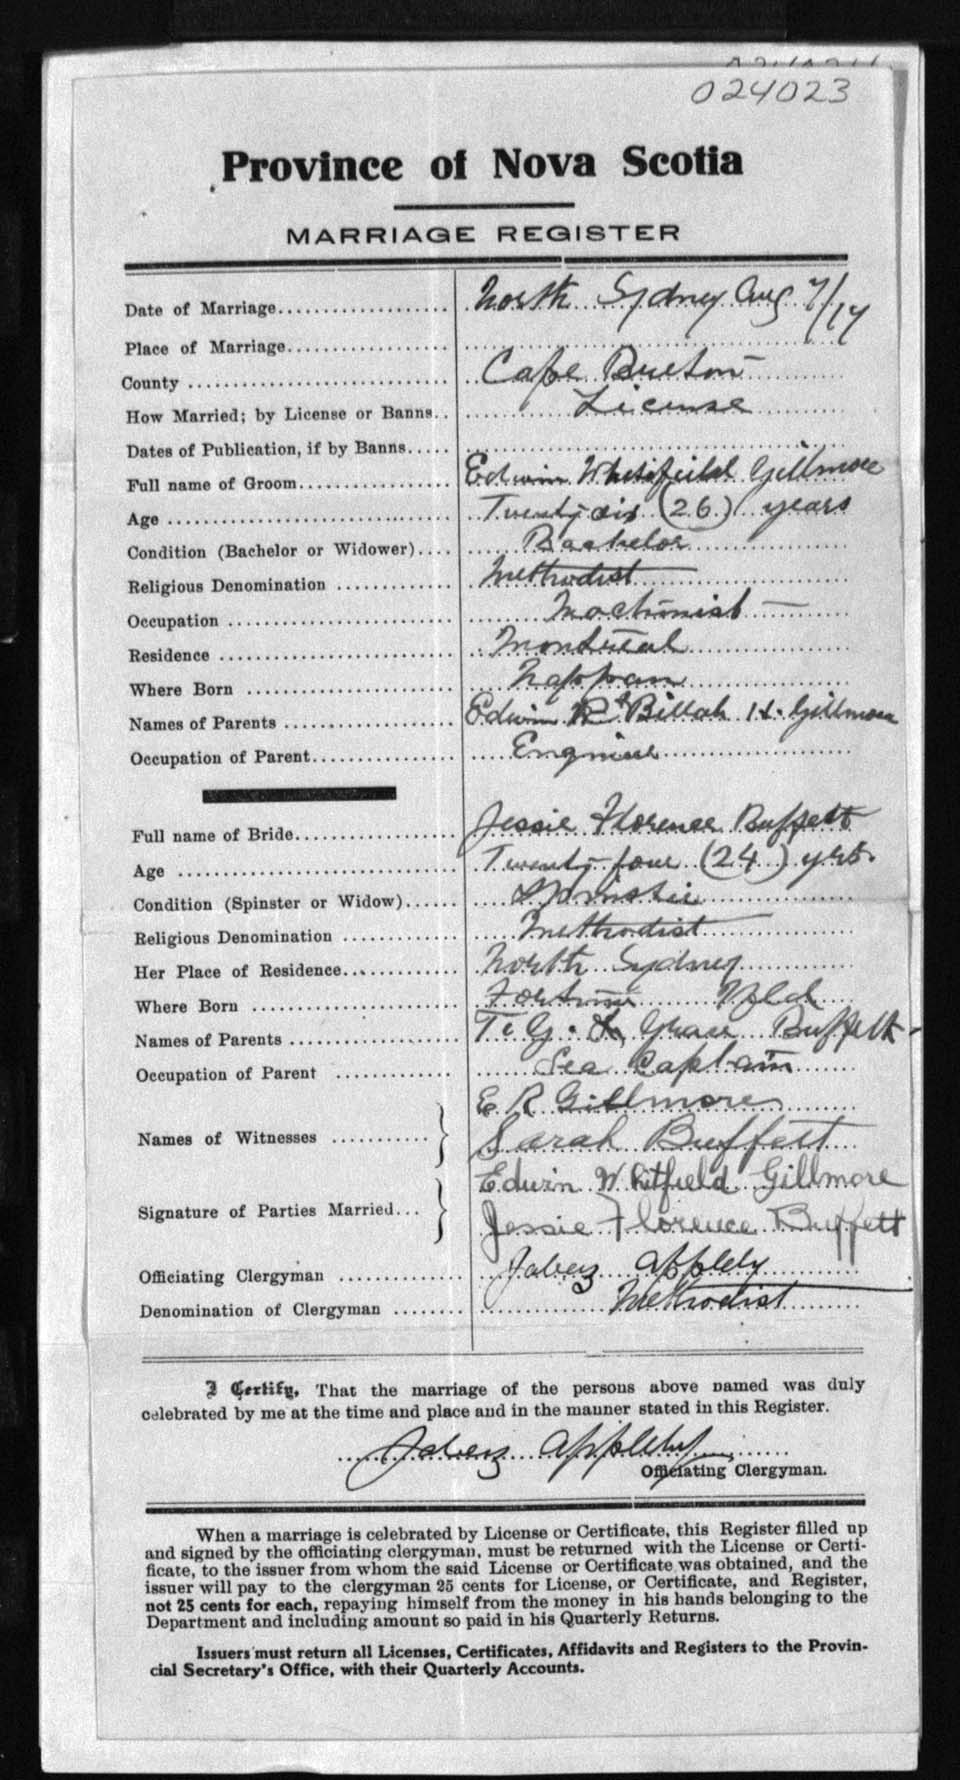 024023
Province of Nova Scotia
MARRIAGE REGISTER
Date of Marriage.................... North Sydney Aug 7/14
Place of Marriage....................
County ............................ Cape Breton
How Married; by License or Banns.. License
Dates of Publication, if by Banns.....
Full name of Groom.................. Edwin Whitefield Gillmore
Age ............................... Twenty six (26) years
Condition (Bachelor or Widower).... Bachelor
Religious Denomination ............. Methodist
Occupation ......................... Machinist
Residence .......................... Montreal
Where Born ....................... Nappan
Names of Parents ................... Edwin R & Billah H. Gillmore
Occupation of Parent................. Engineer
Full name of Bride................... Jessie Florence Buffett
Age ............................... Twenty four (24) yrs.
Condition (Spinster or Widow)...... Spinster
Religious Denomination ............. Methodist
Her Place of Residence.............. North Sydney
Where Born ........................ Fortune Nfld
Names of Parents ................... T. G. & Grace Buffett
Occupation of Parent .............. Sea Captain
E R Gillmore
Names of Witnesses ............
Sarah Buffett
Edwin Whitfield Gillmore
Signature of Parties Married...
Jessie Florence Buffett
Officiating Clergyman ............... Jabez Appleby
Denomination of Clergyman ......... Methodist
I Certify, That the marriage of the persons above named was duly
celebrated by me at the time and place and in the manner stated in this Register.
Jabez Appleby
Officiating Clergyman.
When a marriage is celebrated by License or Certificate, this Register filled up
and signed by the officiating clergyman, must be returned with the License or Certi-
ficate, to the issuer from whom the said License or Certificate was obtained, and the
issuer will pay to the clergyman 25 cents for License, or Certificate, and Register,
not 25 cents for each, repaying himself from the money in his hands belonging to the
Department and including amount so paid in his Quarterly Returns.
Issuers must return all Licenses, Certificates, Affidavits and Registers to the Provin-
cial Secretary's Office, with their Quarterly Accounts.